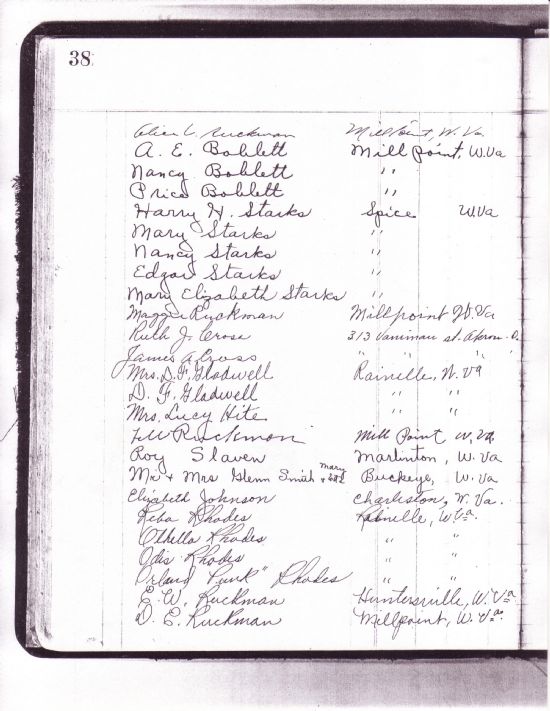 38
Alice L. Ruckman Millpoint, W. Va
A. E. Boblett Mill point, W.Va
Nancy Boblett "
Price Boblett "
Harry H. Starks Spice W.Va
Mary Starks "
Nancy Starks "
Edgar Starks "
Mary Elizabeth Starks "
Maggie Ruckman Millpoint W. Va
Ruth J. Cross 313 Vaniman st. Akron - O.
James A Cross " " " "
Mrs. D. F. Gladwell Rainelle, W. Va
D. F. Gladwell " "
Mrs. Lucy Hite " "
Ruckman Mill Point W. Va.
Roy Slaven Marlinton, W. Va
Mr. + Mrs Glenn Smith + Mary Buckeye, W. Va
Elizabeth Johnson Charleston, W. Va.
Reba Rhodes Rainelle, W. Va.
Othella Rhodes " "
Odis Rhodes " "
Orland "Punk" Rhodes " "
E. W. Ruckman Huntersville, W. Va
D. E. Ruckman Millpoint, W. Va.